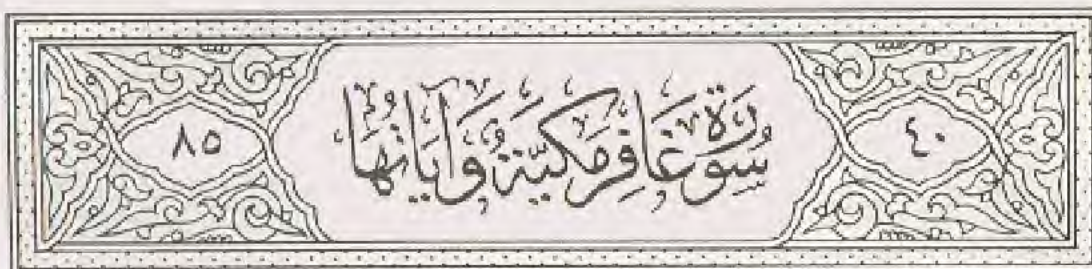 ٤٠ سُورَة غَافِر مَكِّيَّة وَآيَاتُهَا ٨٥